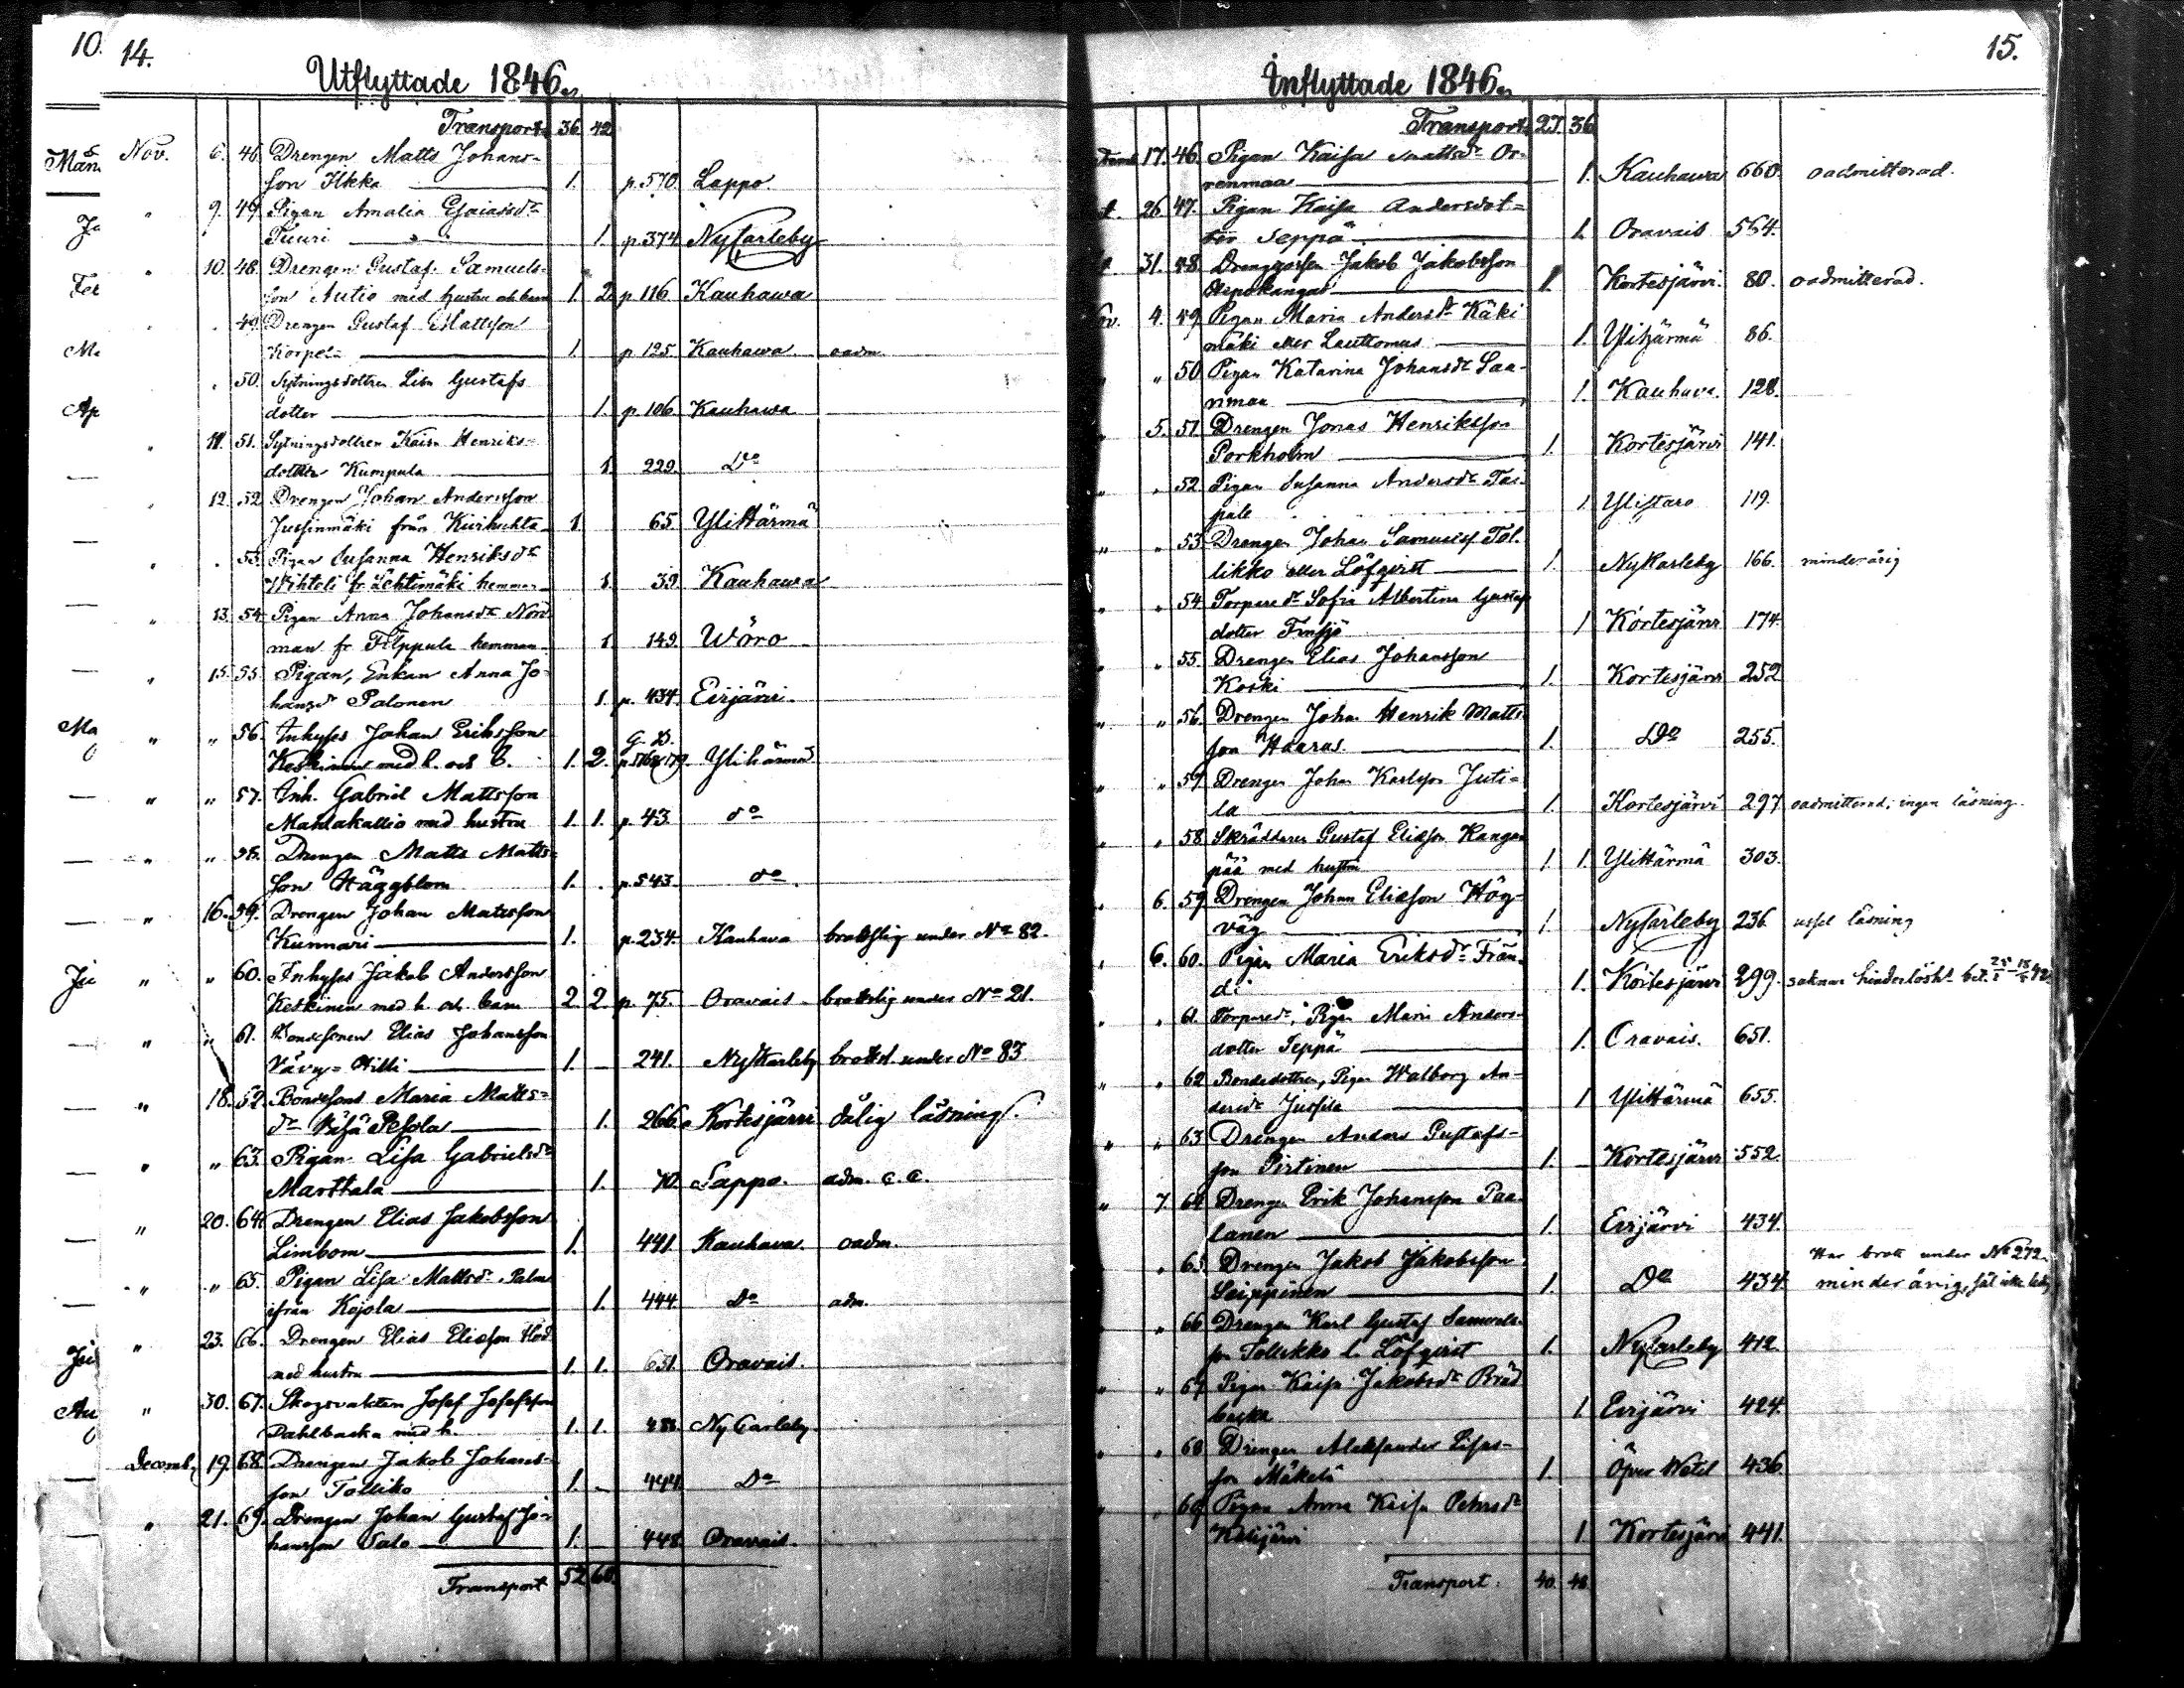 10.
14.
Utflyttade 1846.
Transport 36 42
Nov. 6. 46. Drengen Matts Johans-
son Ilkka 1. p. 570. Lappo.
" 9. 47. Pigan Amalia Esaiasdr
Tuuri 1. p. 374 NyCarleby
" 10. 48. Drengen Gustaf Samuels-
son Autio med hustru och barn 1 2 p 116 Kauhawa
" . 49. Drengen Gustaf Mattsson
Korpela 1 p 125. Kauhawa. oadm.
. 50. Sytningsdottren Lisa Gustafs
dotter 1. p 106. Kauhawa
" 11. 51. Sytningsdottren Kaisa Henriks-
dotter Kumpula 1. 229. Do
" 12. 52. Drengen Johan Andersson
Jussinmäki från Kuihuhta 1 65 YliHärmä
" . 53. Pigan Susanna Henriksdr
fr Lehtimäki hemman 1. 39. Kauhawa
" 13. 54. Pigan Anna Johansdr Nord
man fr Filppula hemman 1 149. Wörå
" 15. 55. Pigan, Enkan Anna Jo-
hansdr Palonen 1. p. 434. Evijärvi.
" " 56. Inhyses Johan Eriksson
Keskinen med h. och b. 1. 2. Ylihärmä
" " 57. Inh. Gabriel Mattsson
Mahlakallio med hustru 1. 1. p. 43. do
" " 58. Drengen Matts Matts-
son Häggblom 1. . p. 543. do
" 16. 59. Drengen Johan Matsson
Kunnari 1. p. 234. Kauhava brottslig under No 82.
" " 60. Inhyses Jakob Andersson
Keskinen med h. och barn 2 2. p. 75. Oravais brottslig under No 21.
" " 61. Bondesonen Elias Johansson
Vävy-Willi 1. – 241. NyKarleby brottsl. under No 83.
" 18. 62. Bondesons Maria Matts-
dr Wäsä Pesola 1. 266. Kortesjärvi dålig läsning.
" " 63. Pigan Lisa Gabrielsdr
Marttala 1. 70. Lappo. adm. c. c.
" 20. 64. Drengen Elias Jakobsson
Limbom 1. 441 Kauhava. oadm.
" " 65. Pigan Lisa Mattsdr Palm
ifrån Kojola 1. 444 Do adm.
" 23. 66. Drengen Elias Eliasson
med hustru 1. 1. 631. Oravais.
" 30. 67. Skogsvakten Josef Josefsson
Dahlbacka med h. 1. 1. 433. NyCarleby.
Decemb. 19. 68. Drengen Jakob Johans-
son Tollikko 1. – 444 Do
" 21. 69. Drengen Johan Gustaf Jo-
hansson Salo 1. – 448 Oravais.
Transport 52 60.
15.
Inflyttade 1846.
Transport 27. 36
17. 46. Pigan Kaisa Mattsdr Or-
renmaa 1. Kauhawa 660. oadmitterad.
26. 47. Pigan Kaisa Andersdot-
ter Seppä 1. Oravais 564.
31. 48. Drenggossen Jakob Jakobsson
Hepokangas 1. Kortesjärvi. 80. oadmitterad.
4. 49. Pigan Maria Andersdr Käki
mäki eller Lauttomus 1. YliHärmä 86.
" 50 Pigan Katarina Johansdr Saa-
rimaa 1. Kauhava. 128.
5. 51. Drengen Jonas Henriksson
Porkholm 1. Kortesjärvi 141.
" . 52 Pigan Susanna Andersdr Tai-
pale 1 Ylistaro 119.
" " 53. Drengen Johan Samuelss. Tol-
likko eller Löfqvist 1. NyKarleby 166. minderårig
" " 54 Torparedr Sofia Albertina Gustafs
dotter Finsjö 1 Kortesjärvi 174
" " 55. Drengen Elias Johansson
Koski 1. Kortesjärvi 252
" " 56. Drengen Johan Henrik Matts
son Haarus. 1. Do 255.
" " 57. Drengen Johan Karlsson Juti-
la 1. Kortesjärvi 297 oadmitterad; ingen läsning.
" " 58. Skräddaren Gustaf Eliasson Kangan
pää med hustru 1 1. YliHärmä 303.
6. 59 Drengen Johan Eliasson Hög-
väg 1. NyCarleby 236. ussel läsning
6. 60. Pigan Maria Eriksdr Frän-
di 1. Kortesjärvi 299. saknar hinderlösh. bet.
" " 61. Torparedr, Pigan Maria Anders-
dotter Seppä 1. Oravais. 651.
" " 62 Bondedottren, Pigan Walborg An-
dersdr Jussila 1 YliHärmä 655.
" " 63 Drengen Anders Gustafs-
son Pirtinen 1. – Kortesjärvi 552.
" 7. 64 Drengen Erik Johansson Paa-
lanen 1. Evijärvi 434.
" 65 Drengen Jakob Jakobsson
Seippinen 1. Do 434. Har brott under No 272.
minderårig,
" 66 Drengen Karl Gustaf Samuels-
son Tollikko l. Löfqvist 1. NyCarleby 412.
" " 67 Pigan Kaisa Jakobsdr Bräd
backa 1. Evijärvi 424.
" " 68 Drengen Aleksander Eliäs-
son Mäkelä 1. Öfver Wetil 436.
" " 69 Pigan Anna Kaisa Pehrsdr
Kälijärvi 1. Kortesjärvi 441.
Transport. 40. 48.